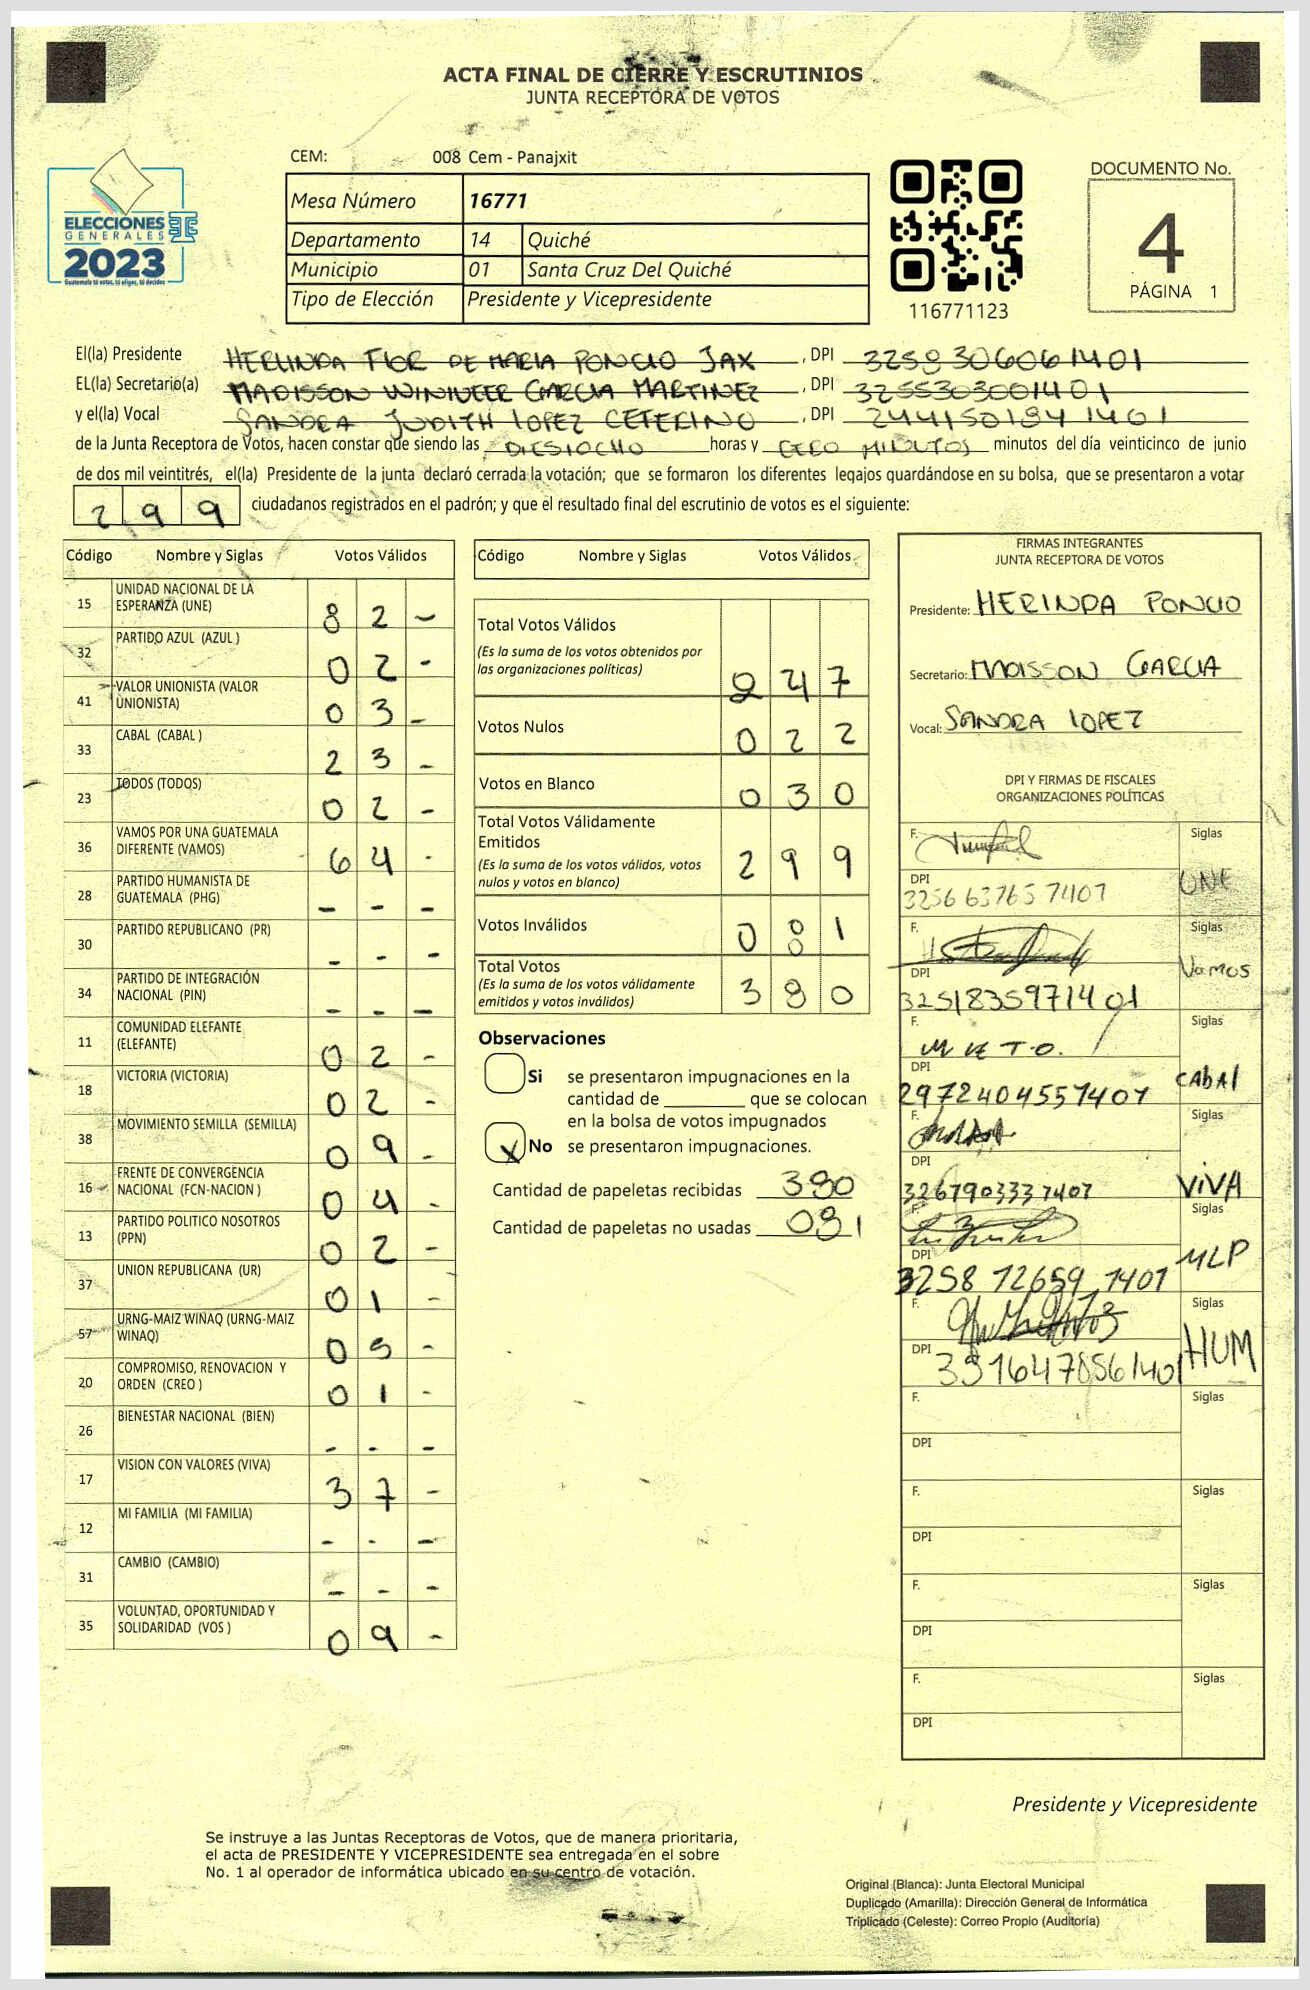 ACTA FINAL DE CIERRE Y ESCRUTINIOS
JUNTA RECEPTORA DE VOTOS
CEM: 008 Cem - Panajxit
ELECCIONES
GENERALES
2023
Guatemala tú votas, tú eliges, tú decides
Mesa Número 16771
Departamento 14 Quiché
Municipio 01 Santa Cruz Del Quiché
Tipo de Elección Presidente y Vicepresidente
116771123
DOCUMENTO No.
4
PÁGINA 1
El(la) Presidente HERLINDA FLOR DE MARIA PONCIO JAX, DPI 3259306061401
EL(la) Secretario(a) MADISSON WINIVEER GARCIA MARTINEZ, DPI 3255303001401
y el(la) Vocal SANDRA JUDITH LOPEZ CETERINO, DPI 2441501841401
de la Junta Receptora de Votos, hacen constar que siendo las DIESIOCHO horas y CERO MINUTOS minutos del día veinticinco de junio
de dos mil veintitrés, el(la) Presidente de la junta declaró cerrada la votación; que se formaron los diferentes legajos guardándose en su bolsa, que se presentaron a votar
299 ciudadanos registrados en el padrón; y que el resultado final del escrutinio de votos es el siguiente:
Código Nombre y Siglas Votos Válidos
15 UNIDAD NACIONAL DE LA ESPERANZA (UNE) 8 2 -
32 PARTIDO AZUL (AZUL ) 0 2 -
41 VALOR UNIONISTA (VALOR UNIONISTA) 0 3 -
33 CABAL (CABAL ) 2 3 -
23 TODOS (TODOS) 0 2 -
36 VAMOS POR UNA GUATEMALA DIFERENTE (VAMOS) 6 4 -
28 PARTIDO HUMANISTA DE GUATEMALA (PHG) - - -
30 PARTIDO REPUBLICANO (PR) - - -
34 PARTIDO DE INTEGRACIÓN NACIONAL (PIN) - - -
11 COMUNIDAD ELEFANTE (ELEFANTE) 0 2 -
18 VICTORIA (VICTORIA) 0 2 -
38 MOVIMIENTO SEMILLA (SEMILLA) 0 9 -
16 FRENTE DE CONVERGENCIA NACIONAL (FCN-NACION ) 0 4 -
13 PARTIDO POLITICO NOSOTROS (PPN) 0 2 -
37 UNION REPUBLICANA (UR) 0 1 -
57 URNG-MAIZ WINAQ (URNG-MAIZ WINAQ) 0 5 -
20 COMPROMISO, RENOVACION Y ORDEN (CREO ) 0 1 -
26 BIENESTAR NACIONAL (BIEN) - - -
17 VISION CON VALORES (VIVA) 3 7 -
12 MI FAMILIA (MI FAMILIA) - - -
31 CAMBIO (CAMBIO) - - -
35 VOLUNTAD, OPORTUNIDAD Y SOLIDARIDAD (VOS ) 0 9 -
Código Nombre y Siglas Votos Válidos
Total Votos Válidos 2 4 7
(Es la suma de los votos obtenidos por
las organizaciones políticas)
Votos Nulos 0 2 2
Votos en Blanco 0 3 0
Total Votos Válidamente
Emitidos 2 9 9
(Es la suma de los votos válidos, votos
nulos y votos en blanco)
Votos Inválidos 0 8 1
Total Votos 3 8 0
(Es la suma de los votos válidamente
emitidos y votos inválidos)
Observaciones
Si se presentaron impugnaciones en la
cantidad de ________ que se colocan
en la bolsa de votos impugnados
X No se presentaron impugnaciones.
Cantidad de papeletas recibidas 380
Cantidad de papeletas no usadas 081
FIRMAS INTEGRANTES
JUNTA RECEPTORA DE VOTOS
Presidente: HERINDA PONCIO
Secretario: MADISSON GARCIA
Vocal: SANDRA LOPEZ
DPI Y FIRMAS DE FISCALES
ORGANIZACIONES POLÍTICAS
F. Siglas
DPI UNE
3256 63765 7407
F. Siglas
DPI Vamos
3251835971401
F. Siglas
DPI CABAL
2972404557407
F. Siglas
DPI VIVA
3267903337407
F. Siglas
DPI MLP
3258 72659 1401
F. Siglas
DPI 3516478561401 HUM
F. Siglas
DPI
F. Siglas
DPI
F. Siglas
DPI
F. Siglas
DPI
Presidente y Vicepresidente
Se instruye a las Juntas Receptoras de Votos, que de manera prioritaria,
el acta de PRESIDENTE Y VICEPRESIDENTE sea entregada en el sobre
No. 1 al operador de informática ubicado en su centro de votación.
Original (Blanca): Junta Electoral Municipal
Duplicado (Amarilla): Dirección General de Informática
Triplicado (Celeste): Correo Propio (Auditoría)